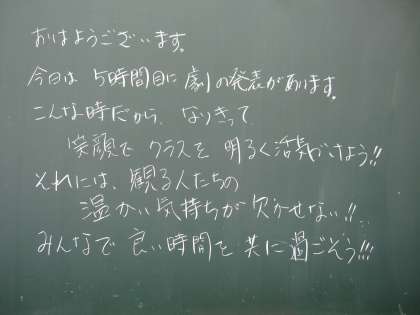 おはようございます。
今日は 5時間目に 劇の発表があります。
こんな時だから、なりきって
笑顔で クラスを 明るく活気づけよう!!
それには、観る人たちの
温かい気持ちが欠かせない!!
みんなで 良い時間を 共に過ごそう!!!